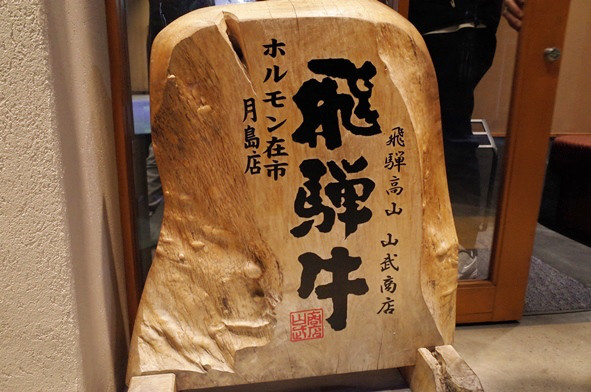 飛騨高山 山武商店
飛騨牛
ホルモン在市
月島店
山武商店